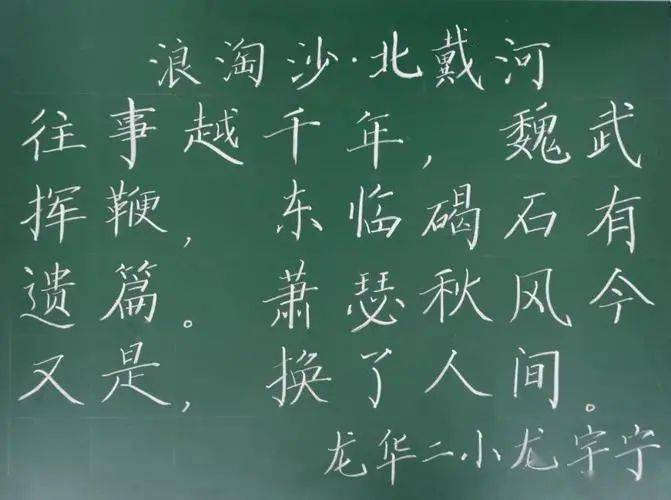 浪淘沙·北戴河
往事越千年，魏武
挥鞭，东临碣石有
遗篇。萧瑟秋风今
又是，换了人间。
龙华二小龙宇宁